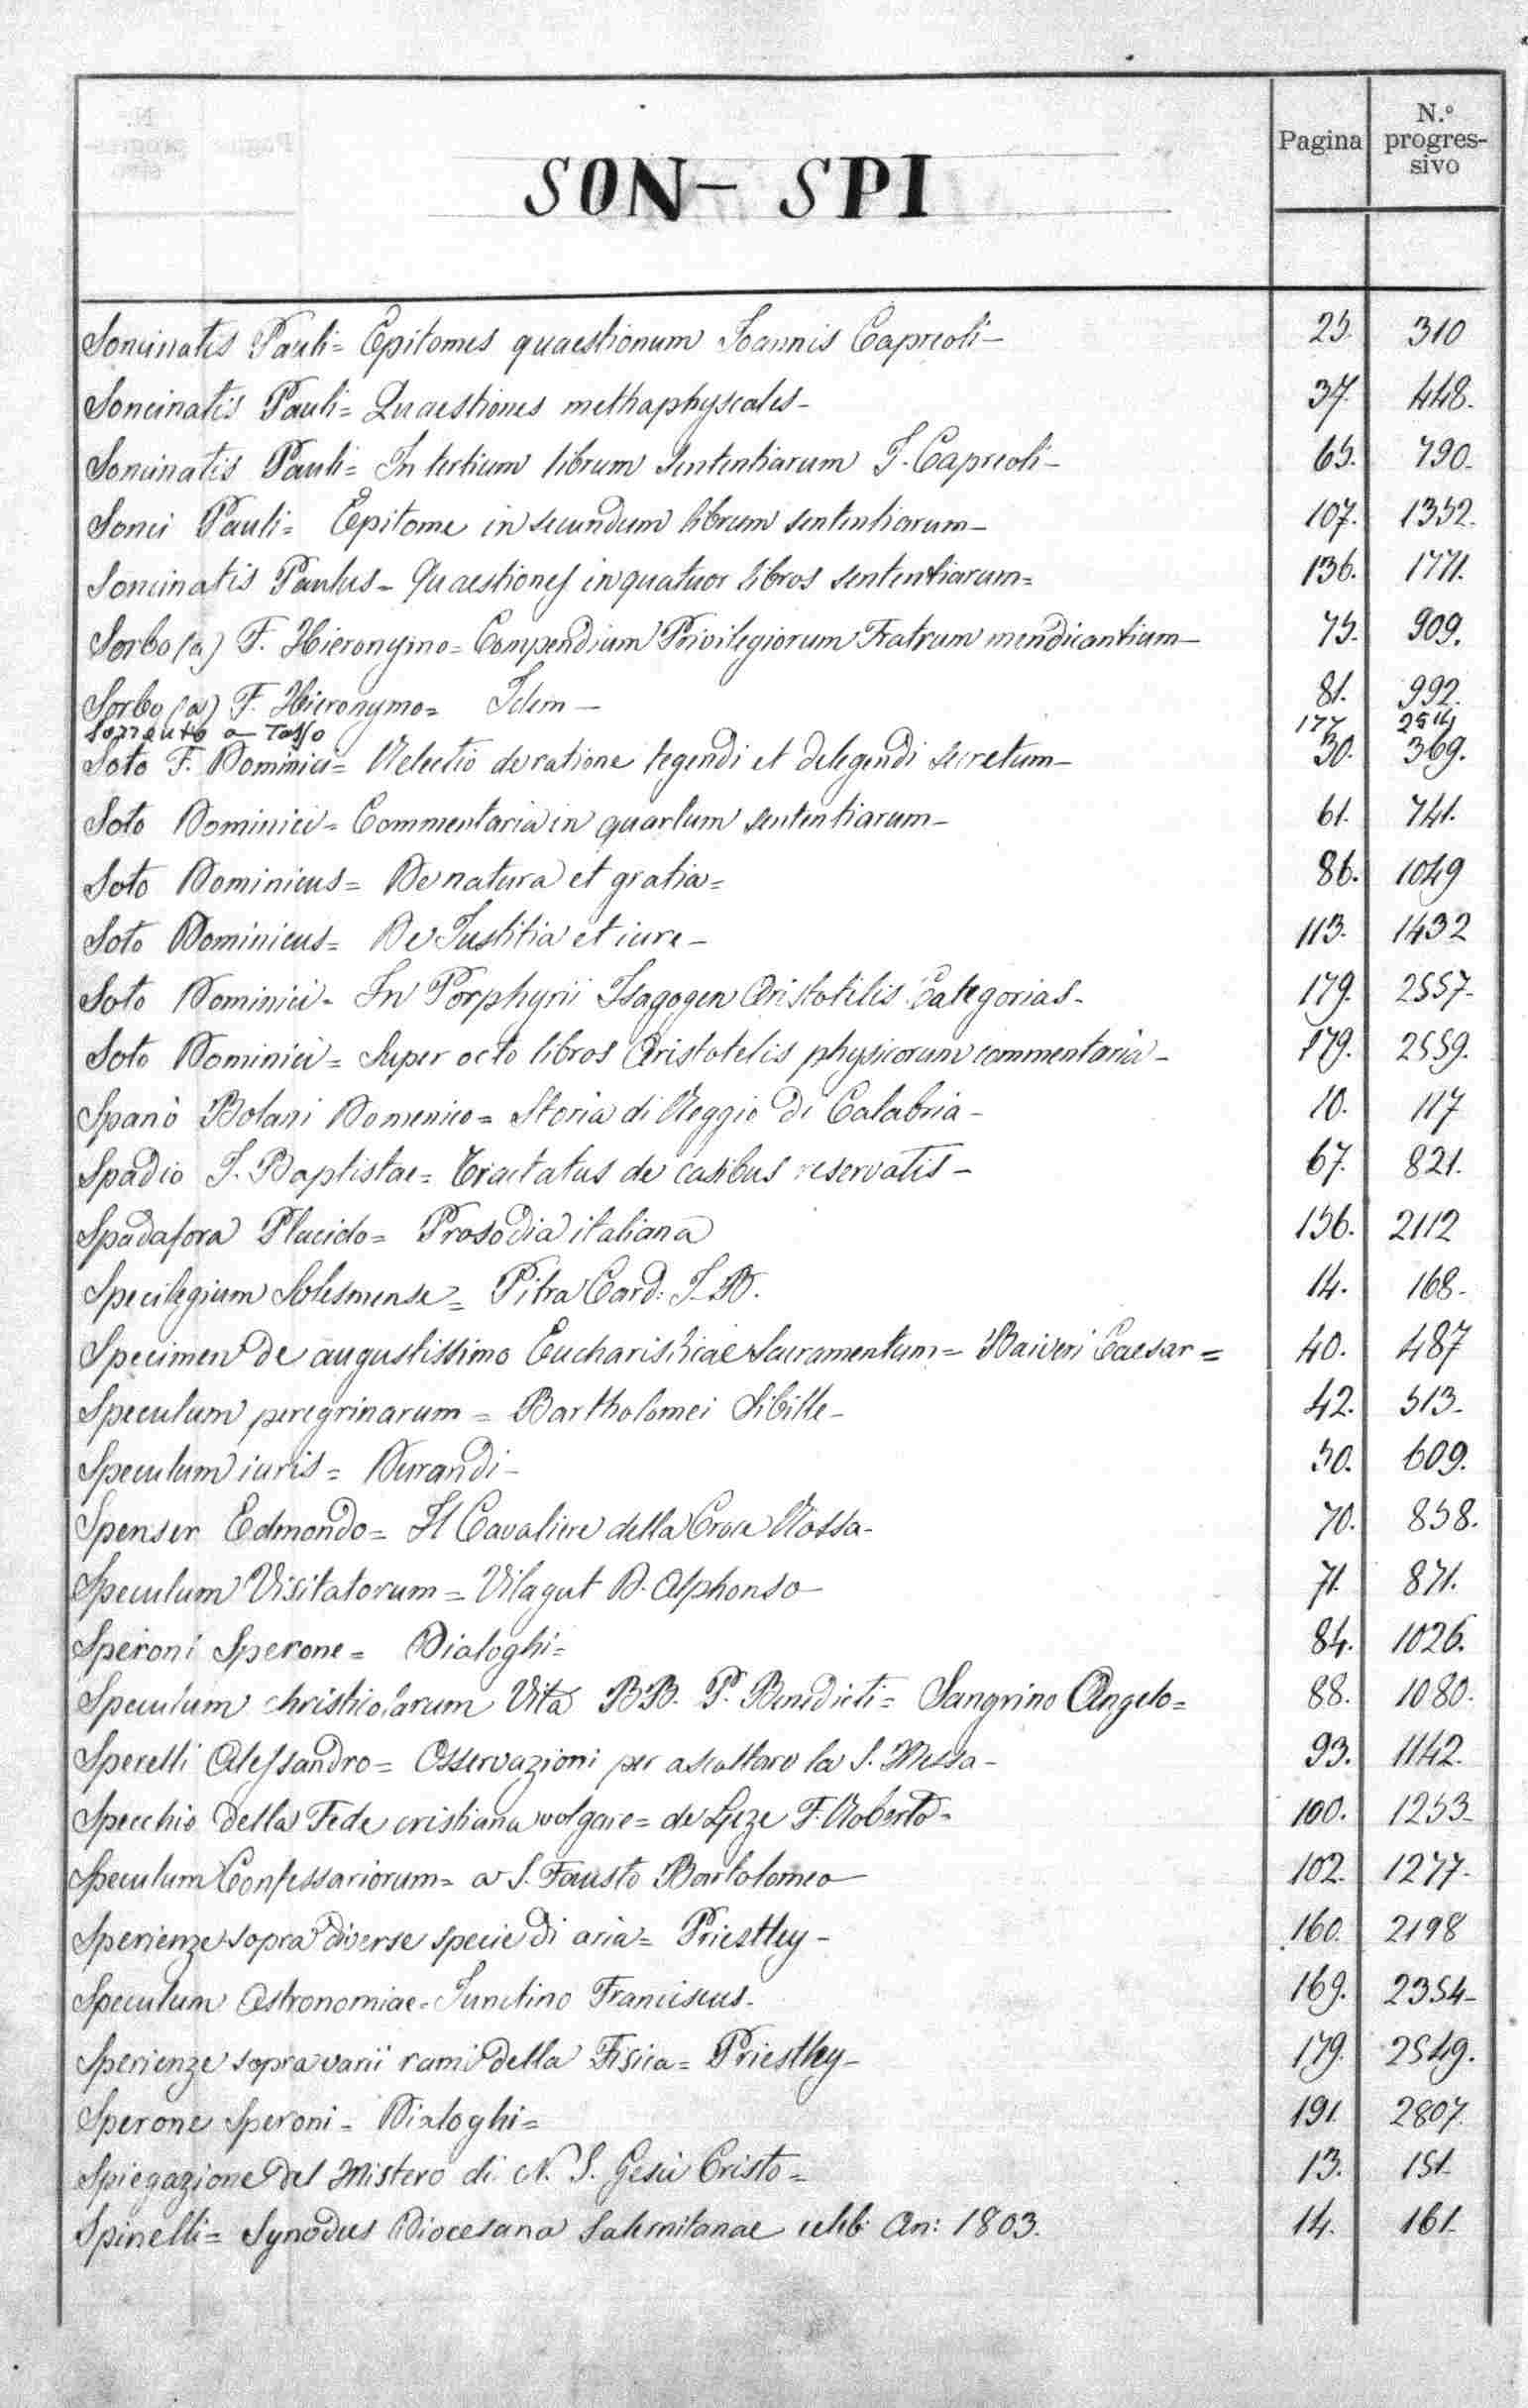 Pagina N.º progres-sivo
SON - SPI
Soncinatis Pauli = Epitomes quaestionum Ioannis Capreoli - 25. 310
Soncinatis Pauli = Quaestiones methaphyscales - 37. 448.
Soncinatis Pauli = In tertium librum sententiarum I. Capreoli - 65. 790.
Sonci Pauli = Epitome in secundum librum sententiarum - 107. 1352.
Soncinatis Paulus - Quaestiones in quatuor libros sententiarum = 136. 1771.
Sorbo (a) F. Hieronymo = Compendium Privilegiorum Fratrum mendicantium - 75. 909.
Sorbo (a) F. Hieronymo = Idem - 81. 992.
Sorrento a Tasso 177
Soto F. Dominici = Relectio de ratione tegendi et detegendi secretum - 30. 369.
Soto Dominici = Commentaria in quartum sententiarum - 61. 741.
Soto Dominicus = De natura et gratia = 86. 1049
Soto Dominicus = De Iustitia et iure - 113. 1432
Soto Dominici - In Porphyrii Isagogen Aristotilis Categorias - 179. 2557.
Soto Dominici = Super octo libros Aristotelis physicorum commentaria - 179. 2559.
Spanò Bolani Domenico = Storia di Reggio di Calabria - 10. 117
Spadio I. Baptistae = Tractatus de casibus reservatis - 67. 821.
Spadafora Placido = Prosodia italiana 156. 2112
Specilegium Solesmense = Pitra Card: I. B. 14. 168.
Specimen de augustissimo Eucharistiae Sacramentum = Baiveri Caesar = 40. 487
Speculum peregrinarum = Bartholomei Sibille - 42. 513.
Speculum iuris = Durandi - 50. 609.
Spenser Edmondo = Il Cavaliere della Croce Rossa - 70. 858.
Speculum Visitatorum = Vilagut D. Alphonso - 71. 871.
Speroni Sperone = Dialoghi = 84. 1026.
Speculum christicolarum Vita BB. P. Benedicti = Sangrino Angelo = 88. 1080.
Sperelli Alessandro = Osservazioni per ascoltare la S. Messa - 93. 1142.
Specchio della Fede cristiana volgare = de Lyze F. Roberto = 100. 1253.
Speculum Confessariorum = a S. Fausto Bartolomeo 102. 1277.
Sperienze sopra diverse specie di aria = Priestley - 160. 2198
Speculum Astronomiae - Junctino Franciscus - 169. 2354.
Sperienze sopra varii rami della Fisica = Priestley - 179. 2549.
Sperone Speroni = Dialoghi = 191. 2807.
Spiegazione del Mistero di N. S. Gesù Cristo = 13. 151.
Spinelli = Synodus Diocesana Salernitanae celeb: An: 1803. 14. 161.